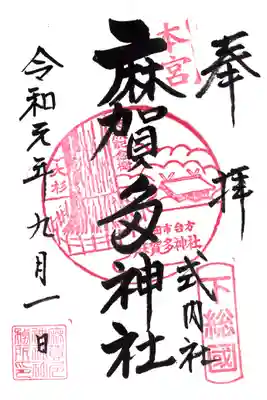 奉拝
本宮
式内社
下総國
麻賀多神社
大杉
市台方
麻賀多神社
令和元年九月一日